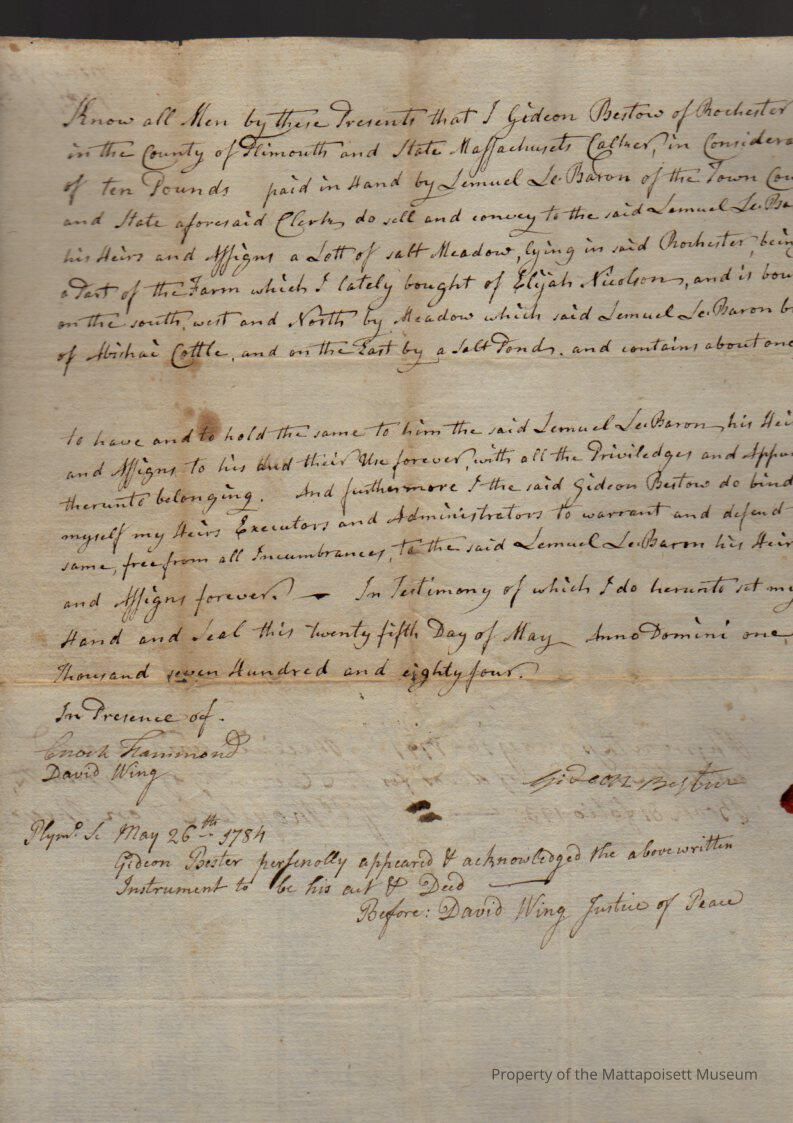 Know all Men by these Presents that I Gideon Bestow of Rochester
in the County of Plimouth and State Massachusets Calker, in Considera
of ten Pounds paid in Hand by Lemuel Le Baron of the Town Cou
and State aforesaid Clerk, do sell and convey to the said Lemuel Le Ba
his Heirs and Assigns a Lott of salt Meadow, lying in said Rochester, bein
a Part of the Farm which I lately bought of Elijah Nicolson, and is bou
on the south, west and North by Meadow which said Lemuel Le Baron b
of Abishai Cottle, and on the East by a Salt Pond. and contains about one
to have and to hold the same to him the said Lemuel Le Baron, his Hei
and Assigns to his and their Use forever, with all the Priviledges and Appu
therunto belonging. And furthermore I the said Gideon Bestow do bind
myself my Heirs Executors and Administrators to warrant and defend
same, free from all Incumbrances, to the said Lemuel Le Baron his Heir
and Assigns forever. — In Testimony of which I do herunto set my
Hand and Seal this twenty fifth Day of May Anno Domini one
Thousand seven Hundred and eighty four.
In Presence of.
Enoch Hammond
David Wing
Gideon Bestur
Plymo. Sc May 26th 1784
Gideon Bester persenolly appeared & acknowledged the above written
Instrument to be his act & Deed —
Before: David Wing Justice of Peace
Property of the Mattapoisett Museum